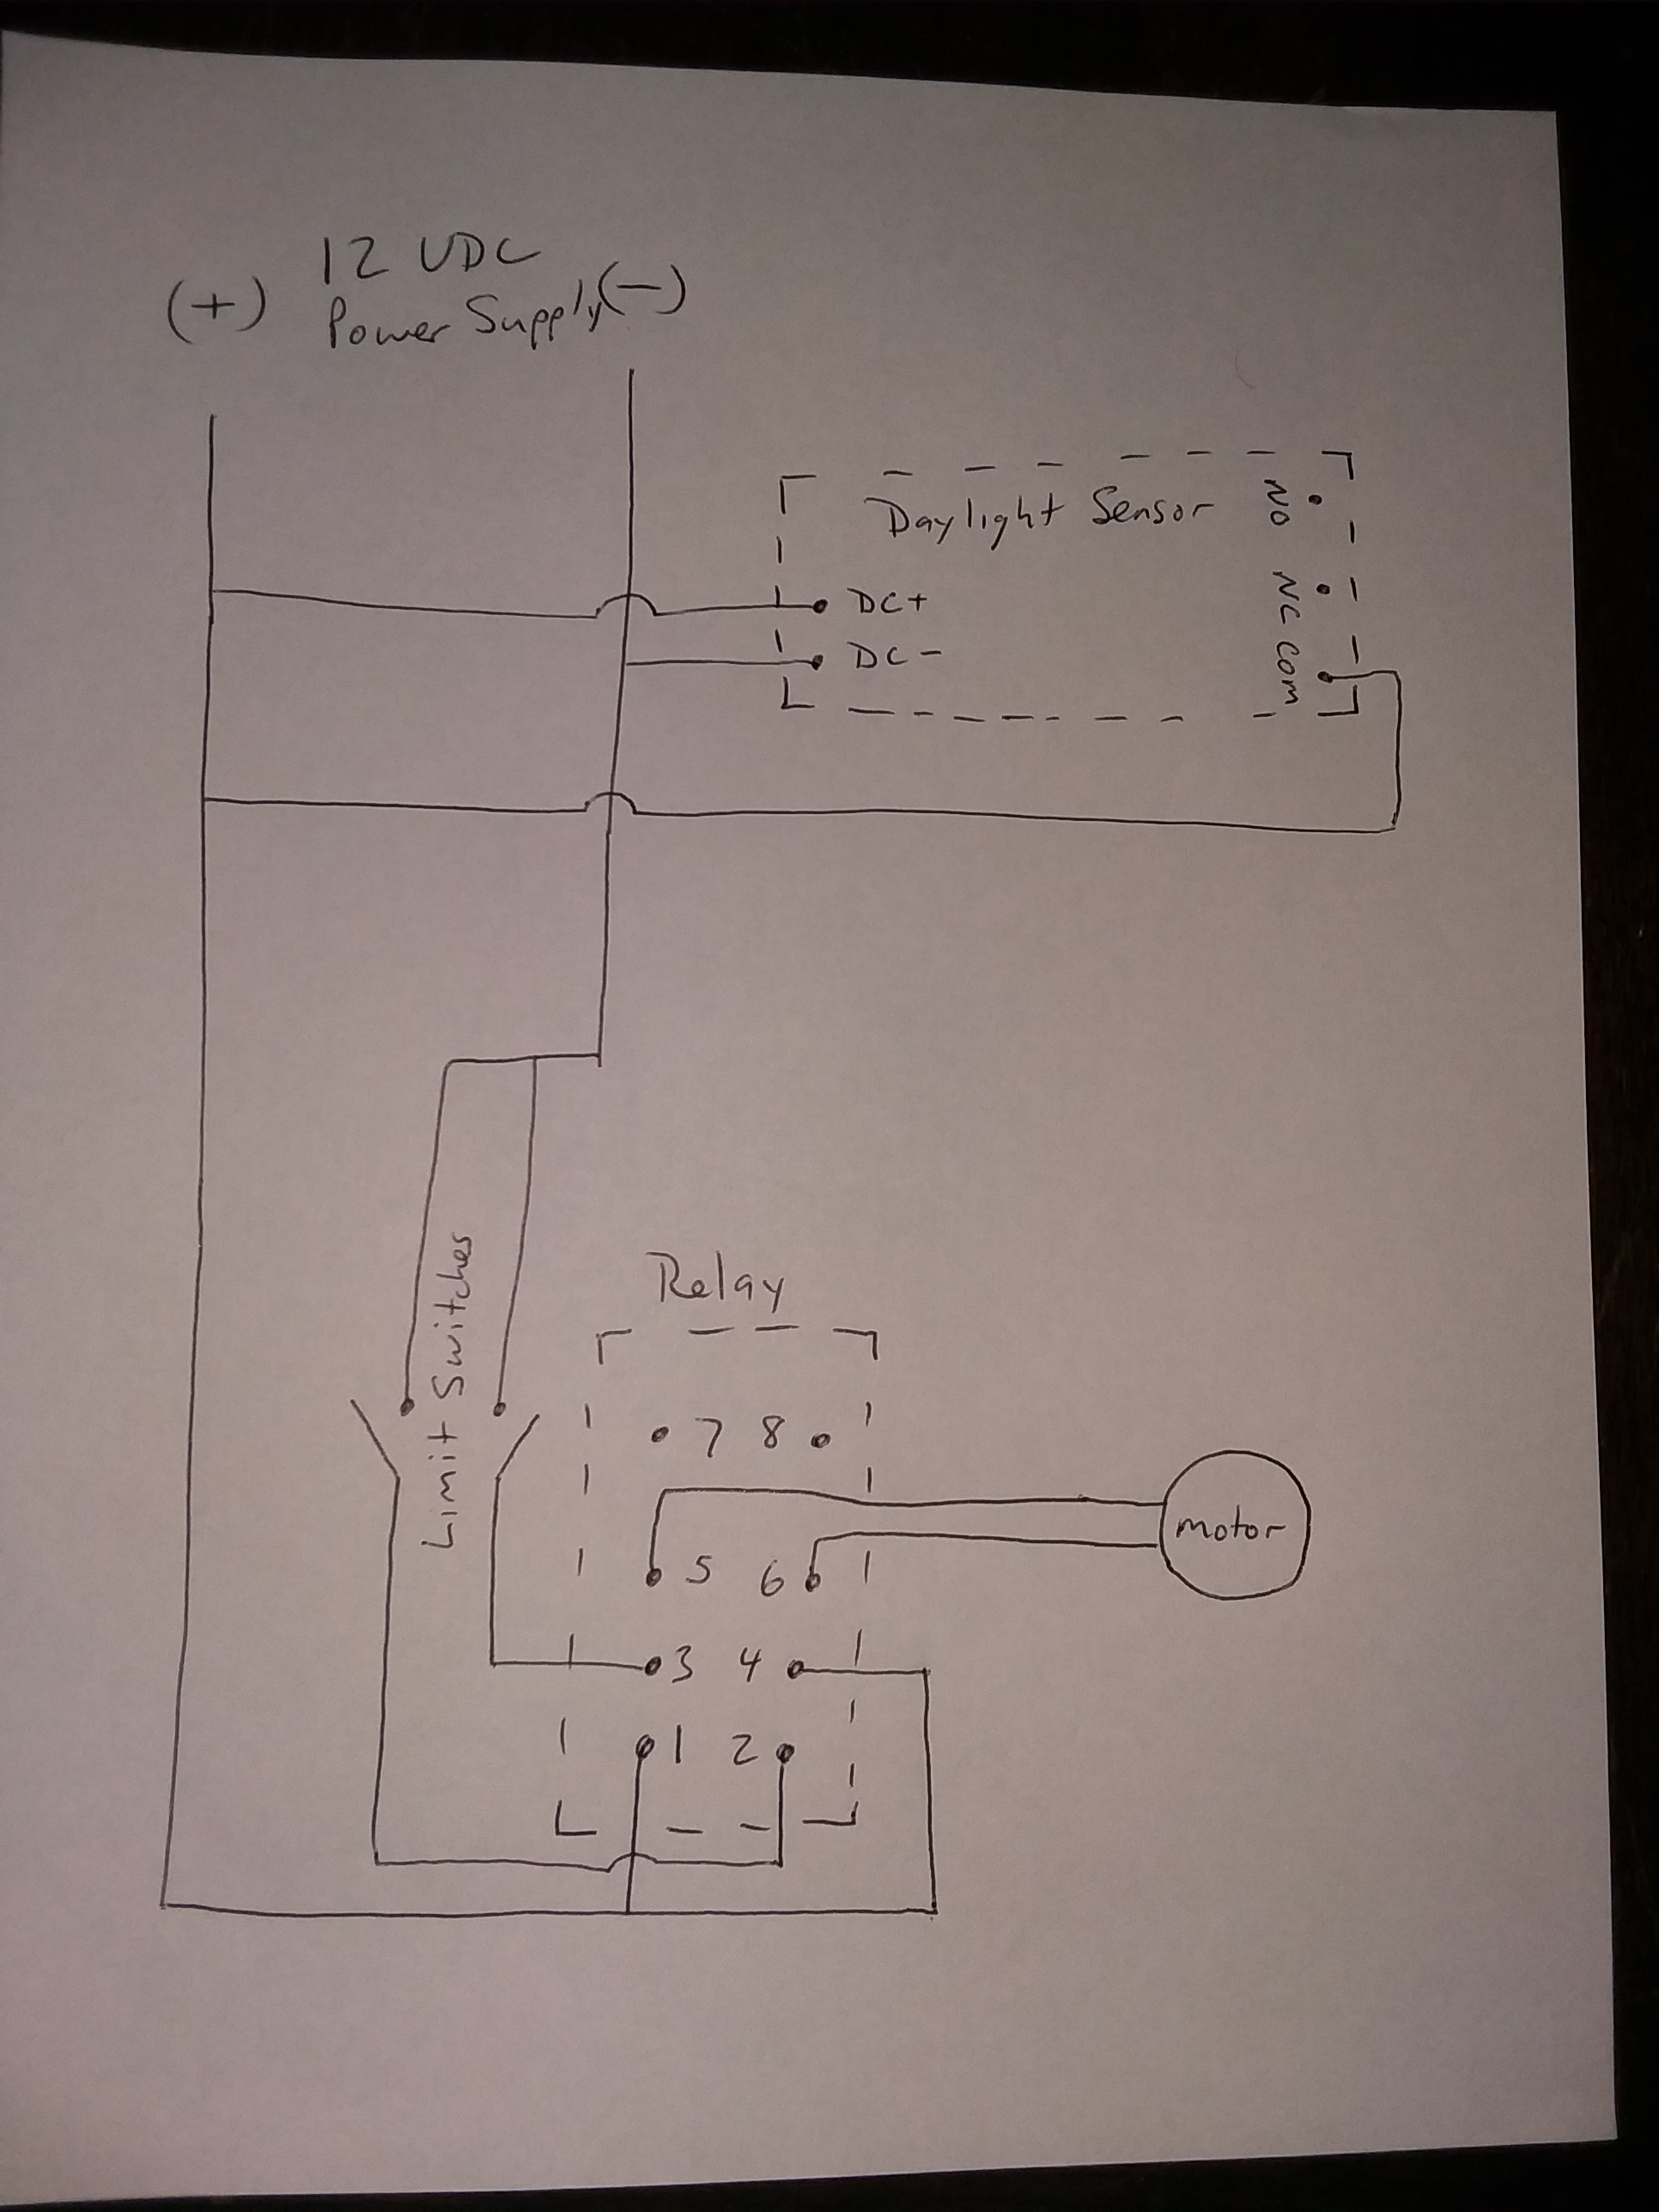 12 VDC
(+) Power Supply (-)
Daylight Sensor
NO
NC
COM
DC+
DC-
Limit Switches
Relay
7 8
5 6
motor
3 4
1 2